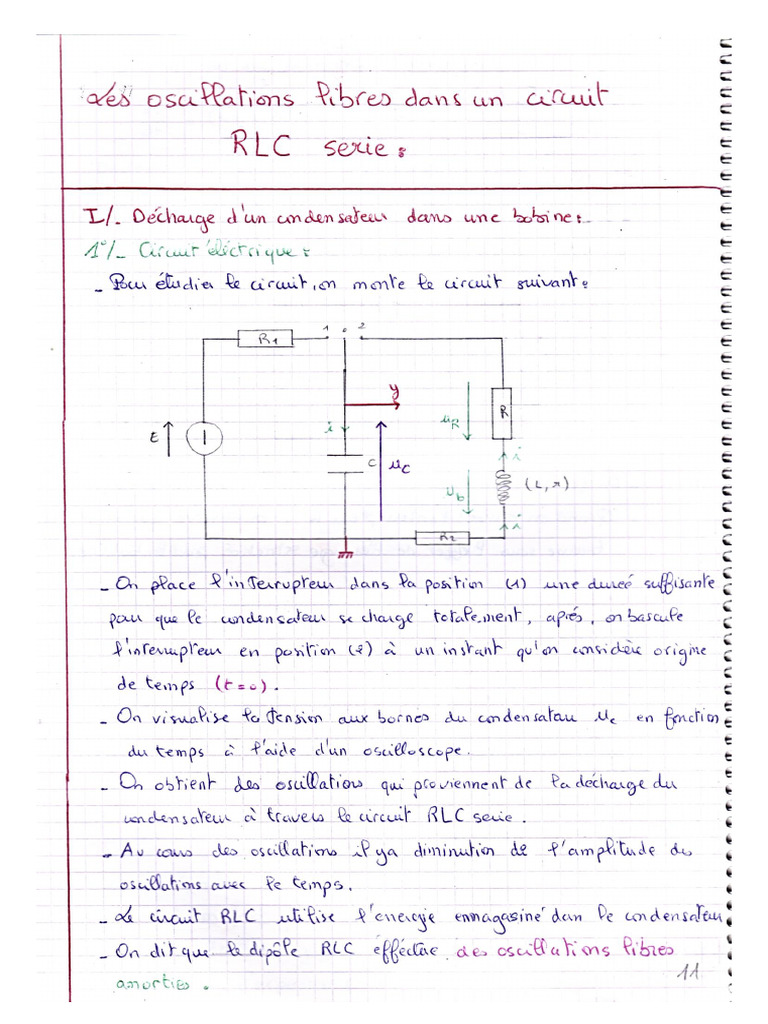 Les oscillations libres dans un circuit
RLC serie :
I/- Décharge d'un condensateur dans une bobine :
1°/- Circuit éléctrique :
- Pour étudier le circuit, on monte le circuit suivant :
1 2
R1
y
R
uR
E
i
C
uc
i
ub
(L, r)
i
R2
- On place l'interrupteur dans la position (1) une dureé suffisante
pour que le condensateur se charge totalement, après, on bascule
l'interrupteur en position (2) à un instant qu'on considère origine
de temps (t=0).
- On visualise la tension aux bornes du condensateu uc en fonction
du temps à l'aide d'un oscilloscope.
- On obtient des oscillations qui proviennent de la décharge du
condensateur à travers le circuit RLC serie.
- Au cours des oscillations il ya diminution de l'amplitude des
oscillations avec le temps.
- Le circuit RLC utilise l'energie emmagasiné dans le condensateur
- On dit que le dipôle RLC éffectue des oscillations libres
amorties.
11